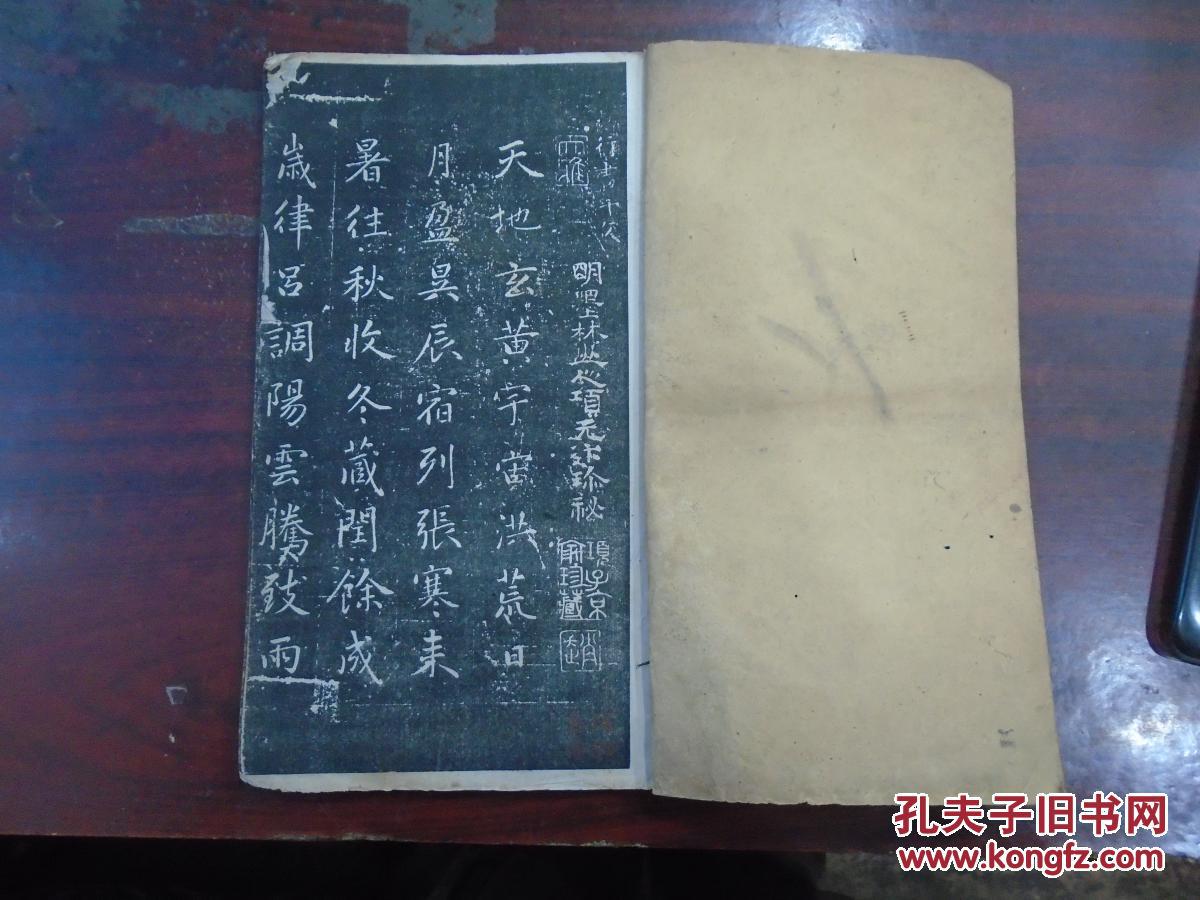 明墨林山人項元汴珍祕
項子京
家珍藏
趙
天地玄黃宇宙洪荒日
月盈昃辰宿列張寒来
暑往秋收冬蔵閏餘成
歲律呂調陽雲騰致雨
孔夫子旧书网
www.kongfz.com